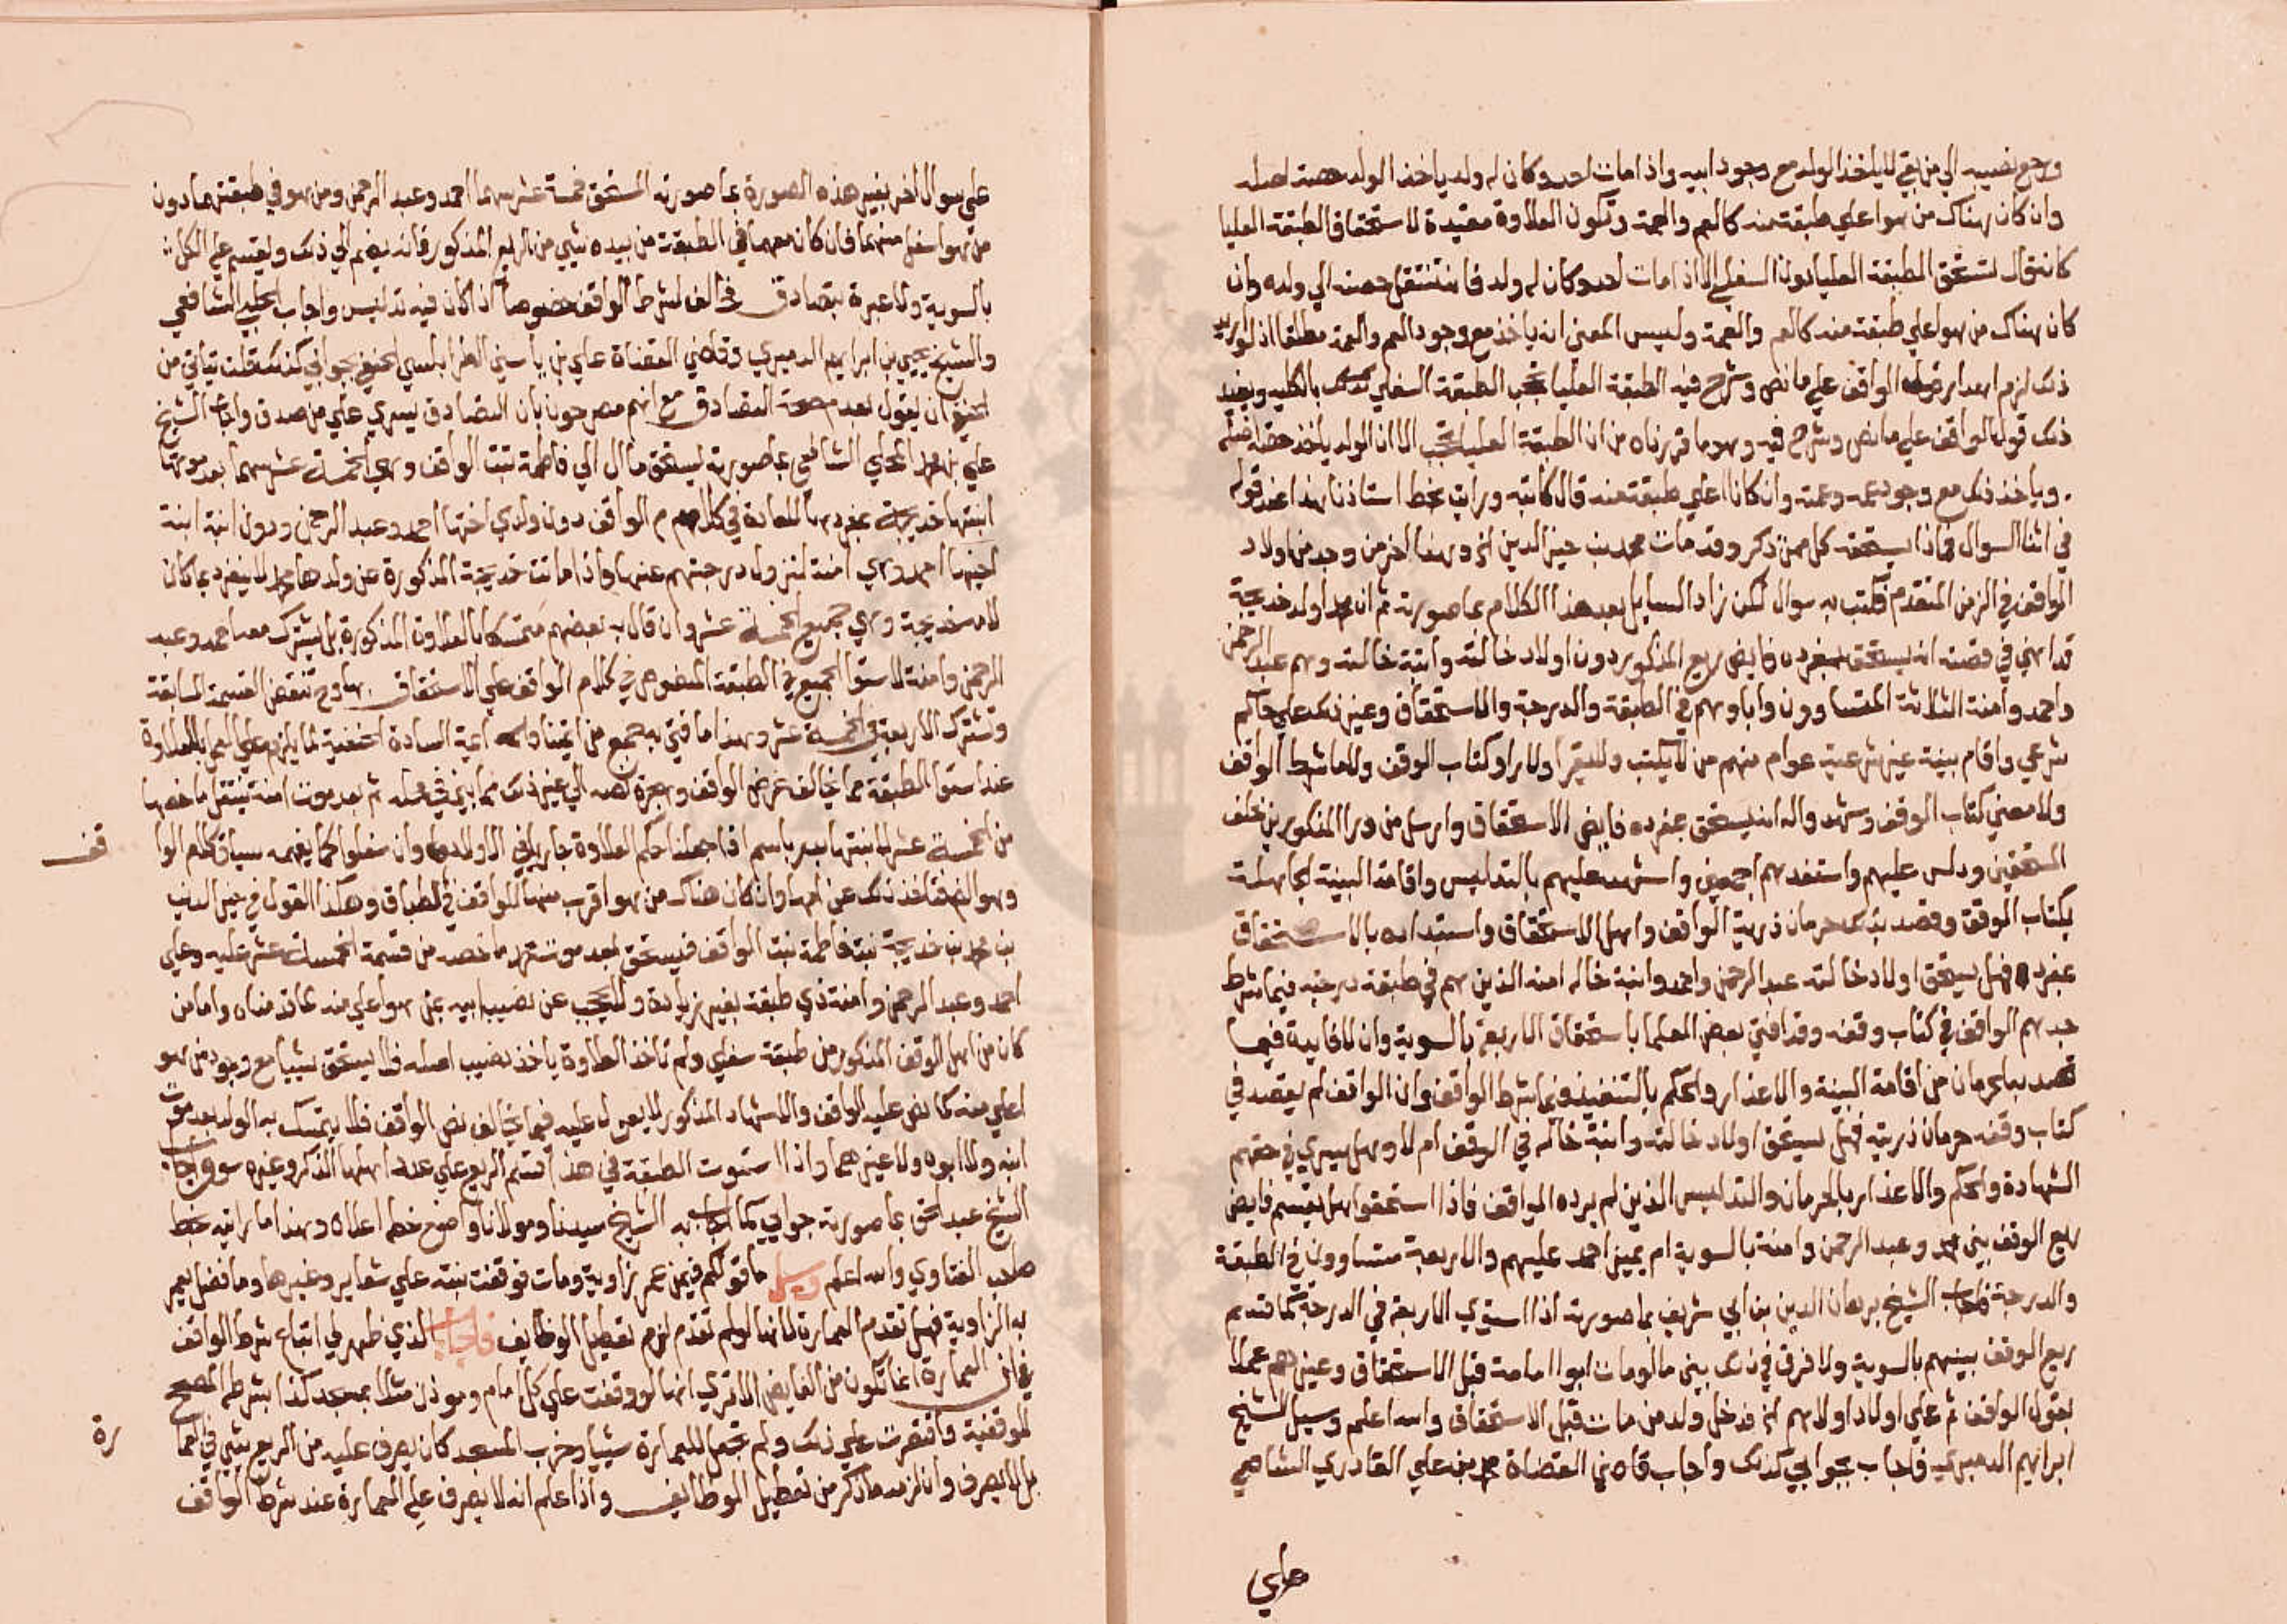 ورجع نصيبه الي من بقي لا ياخذ الولد مع وجود ابيه واذا مات احد وكان له ولد ياخذ الولد حصة اصله
وان كان هناك من هو اعلي طبقة منه كالعم والعمة وتكون العلاوة مقيدة لاستحقاق الطبقة العليا
كانه قال تستحق الطبقة العليا دون السفلي الا اذا مات احد وكان له ولد فانه تنتقل حصته الي ولده وان
كان هناك من هو اعلي طبقة منه كالعم والعمة وليس المعني انه ياخذ مع وجود العم والعمة مطلقا اذ لو اريد
ذلك لزم اهدار قول الواقف علي ما نص وشرح فيه الطبقة العليا تحجب الطبقة السفلي بالكلية ويفيد
ذلك قول الواقف علي ما نص وشرح فيه وهو ما قررناه من ان الطبقة العليا تحجب الا ان الولد ياخذ حصة اصله
وياخذ ذلك مع وجود عمه وعمته وان كانا اعلي طبقة منه قال كاتبه ورايت بخط استاذنا هذا عند قوله
في اثنا السوال فماذا يستحقه كل ممن ذكر وقد مات محمد بن خير الدين اخر وهذا اخر من وجد من اولاد
الواقف في الزمن المتقدم فكتب به سوال لكن زاد السايل بعد هذا الكلام بما صورته ثم ان محمدا ولد خديجة
قد انهي في قصته انه يستحق بمفرده فايض ريع المذكور دون اولاد خالته وابنة خالته وهم عبد الرحمن
واحمد وامنة الثلاثة المتساوون واباوهم في الطبقة والدرجة والاستحقاق وغير ذلك علي حاكم
شرعي واقام بينة غير شرعية عوام منهم من لا يكتب ولا يقرا ولا راو كتاب الوقف ولا ما شرط الواقف
ولا معني كتاب الوقف وشهدوا له انه يستحق بمفرده فايض الاستحقاق وارسل من ورا المذكورين خلف
المستحقين ودلس عليهم واستفدهم اجمعين واشهد عليهم بالتدليس واقامة البينة الجاهلة
بكتاب الوقف وقصد بذلك حرمان ذرية الواقف واهل الاستحقاق واستبداده بالاستحقاق
بمفرده فهل يستحق اولاد خالته عبد الرحمن واحمد وابنة خاله امنة الذين هم في طبقة درجته فيما شرط
جدهم الواقف في كتاب وقفه وقد افتي بعض العلما باستحقاق الاربعة بالسوية وان لا فايدة فيما
قصد به الحرمان من اقامة البينة والاعذار والحكم بالتنفيذ وفيما شرط الواقف وان الواقف لم يقصد في
كتاب وقفه حرمان ذريته فهل يستحق اولاد خالته وابنة خاله في الوقف ام لا وهل يسري في حقهم
الشهادة والحكم والاعذار بالحرمان والتدليس الذين لم يرده الواقف فاذا استحقوا هل يقسم فايض
ريع الوقف بين محمد وعبد الرحمن وامنة بالسوية ام يميز احمد عليهم والاربعة متساوون في الطبقة
والدرجة فاجاب الشيخ برهان الدين بن ابي شريف بما صورته اذا استوي الاربعة في الدرجة كما قسم
ريع الوقف بينهم بالسوية ولا فرق في ذلك بين ما لو مات ابو امامة قبل الاستحقاق وغيرهم عملا
بقول الواقف ثم علي اولاد اولادهم الخ فدخل ولد من مات قبل الاستحقاق والله اعلم وسيل الشيخ
ابراهيم الدميري فاجاب بجوابي كذلك واجاب قاضي القضاة محمد بن علي القادري الشافعي
علي
علي سوال اخر بغير هذه الصورة بما صورته المستحق خمسة عشر سهما احمد وعبد الرحمن ومن هو في طبقتهما دون
من هو اسفل منهما فان كان معهما في الطبقة من بيده شي من الريع المذكور فانه يضم الي ذلك ويقسم علي الكل
بالسوية ولا عبرة بتصادق خالف لشرط الواقف خصوصا اذا كان فيه تدليس واجاب الشافعي
والشيخ يحيي بن ابراهيم الدميري وقاضي القضاة علي بن ياسين الطرابلسي الحنفي بجوابي كذلك قلت يتاتي من
الحنفي ان يقول بعد صحة التصادق مع انهم مصرحون بان التصادق يسري علي من صدق واجاب الشيخ
علي بن محمد المحلي الشافعي بما صورته يستحق ما ال الي فاطمة بنت الواقف وهي الخمسة عشر سهما بعد موتها
ابنتها خديجة بمفردها للعادة في كلام الواقف دون ولدي اختها احمد وعبد الرحمن ودون ابنة ابنة
اخيها احمد وهي امنة لنزول درجتهم عنها واذا ماتت خديجة المذكورة عن ولدها محمد لا ينفرد بما كان
لامه خديجة وهي جميع الخمسة عشر وان قال به بعضهم متمسكا بالعلاوة المذكورة بل يشترك معه احمد وعبد
الرحمن وامنة لاستوا الجميع في الطبقة المنصوص في كلام الواقف علي الاستحقاق بها وح تنتقض القسمة السابقة
وتشترك الاربعة في الخمسة عشر وهذا ما افتي به جمع من ايمتنا وايمة السادة الحنفية لما يلزم علي العمل بالعلاوة
عند استوا الطبقة مما يخالف غرض الواقف ويجره لهم الي غير ذلك مما بين في محله ثم بعد موت امنة ينتقل ما خصها
من الخمسة عشر لابنتها بدر باسم اذا جعلنا حكم العلاوة جاريا في الاولاد وان سفلوا كما يفهمه سياق كلام الوا
قف
وهو الذي فتاخذ ذلك عن امها وان كان هناك من هو اقرب منها للواقف في الطباق وهكذا القول في خير الدين
بن محمد بن خديجة بنت فاطمة بنت الواقف فيستحق بعد موت محمد ما خصه من قسمة الخمسة عشر عليه وعلي
احمد وعبد الرحمن وامنة ذي طبقة بغير زيادة ولا يحجب عن نصيب ابيه بمن هو اعلي منه لما قدمناه واما من
كان من اهل الوقف المذكور من طبقة سفلي ولم تاخذ العلاوة ياخذ نصيب اصله فلا يستحق شيا مع وجود من هو
اعلي منه كما نص عليه الواقف والاشهاد المذكور لا يعول عليه فيما يخالف نص الواقف فلا يتمسك به الولد بعد موت
ابنه ولا ابوه ولا غيرهما واذا استوت الطبقة في هذا قسم الريع علي عدد اهلها الذكر وغيره سوا واجاب
الشيخ عبد الحق بما صورته جوابي كما اجاب به الشيخ سيدنا ومولانا واضع خطه اعلاه وهذا ما رايته بخط
صاحب الفتاوي والله اعلم وسيل ما قولكم فيمن عمر زاوية ومات فوقفت بنته علي شعاير وغيرها وما فضل يعمر
به الزاوية فهل تقدم العمارة لانها لو لم تقدم لزم تعطيل الوظايف فاجاب الذي ظهر لي اتباع شرط الواقف
في ان العمارة انما تكون من الفايض الا تري انها لو وقفت علي كل امام وموذن مثلا بمسجد كذا بشرطه المصحح
للوقفية واقتصرت علي ذلك ولم تجعل للعمارة شيا وخرب المسجد كان يصرف عليه من الريع شي في العما
رة
بل لا يصرف وان لزمه ما ذكر من تعطيل الوظايف واذا علم انه لا يصرف علي العمارة عند شرط الواقف